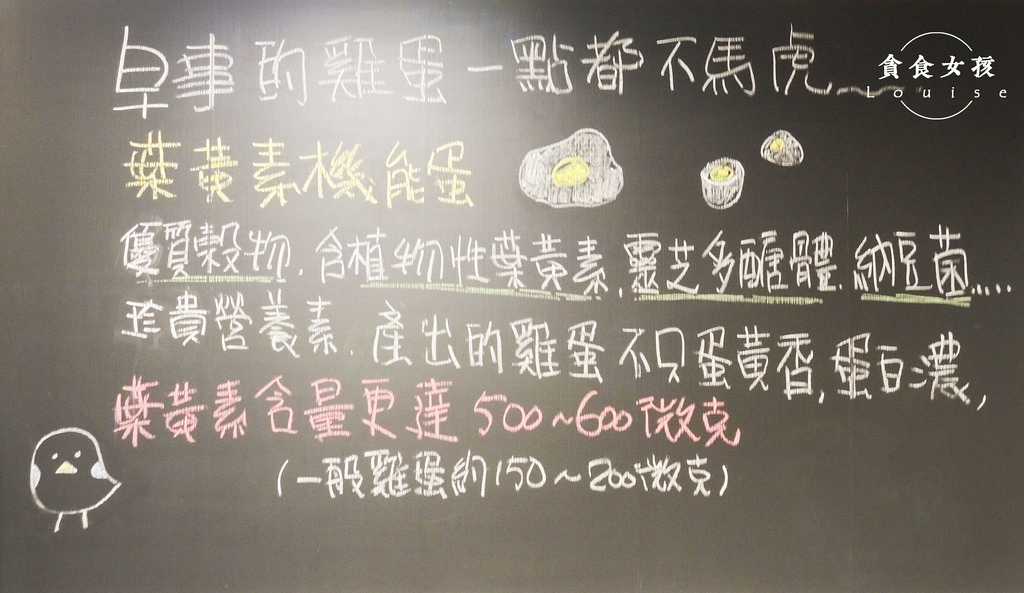 早事的雞蛋一點都不馬虎～～
貪食女孩
Louise
葉黃素機能蛋
優質穀物、含植物性葉黃素、靈芝多醣體、納豆菌.....
珍貴營養素、產出的雞蛋不只蛋黃香,蛋白濃,
葉黃素含量更達500~600微克
(一般雞蛋約150~200微克)